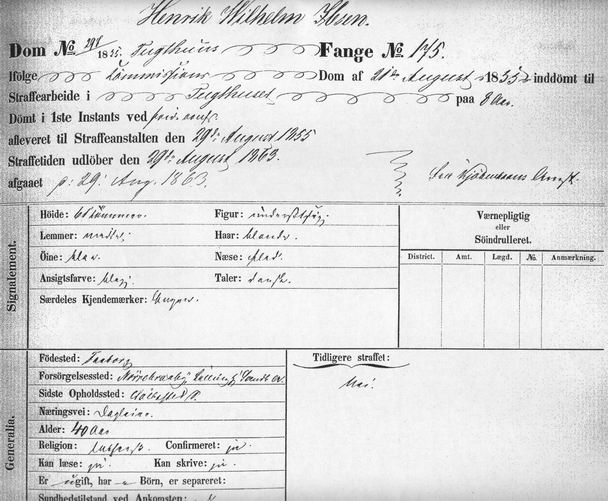 Henrik Wilhelm Ibsen.
Dom № 297/1855. Tugthuus Fange № 175.
Ifølge Commissions Dom af 21de August 1855 inddömt til
Straffearbeide i Tugthuset paa 8 Aar.
Dömt i 1ste Instants ved
afleveret til Straffeanstalten den 29de August 1855
Straffetiden udlöber den 29de August 1863.
afgaaet p: 29. Aug. 1863.
Fra Kjöbenhavns Amt.
Signalement.
Höide: 66 Tommer. Figur: undersætsig.
Lemmer: midler. Haar: blonde.
Öine: blaa. Næse: flad.
Ansigtsfarve: bleg. Taler: dansk.
Særdeles Kjendemærker: Ingen.
Værnepligtig
eller
Söindrulleret.
District. Amt. Lægd. №. Anmærkning.
Generalia.
Födested: Faaborg
Forsörgelsessted:
Sidste Opholdssted:
Næringsvei: Daglejer.
Alder: 40 Aar
Religion: luthersk. Confirmeret: ja.
Kan læse: ja. Kan skrive: ja.
Er ugift, har Börn, er separeret:
Sundhedstilstand ved Ankomsten:
Tidligere straffet:
Nei.